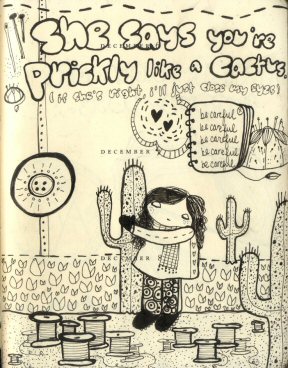 She says you're
DECEMBER
prickly like a cactus.
(if she's right, I'll just close my eyes)
be careful
be careful
be careful
be careful
be careful
DECEMBER
DECEMBER